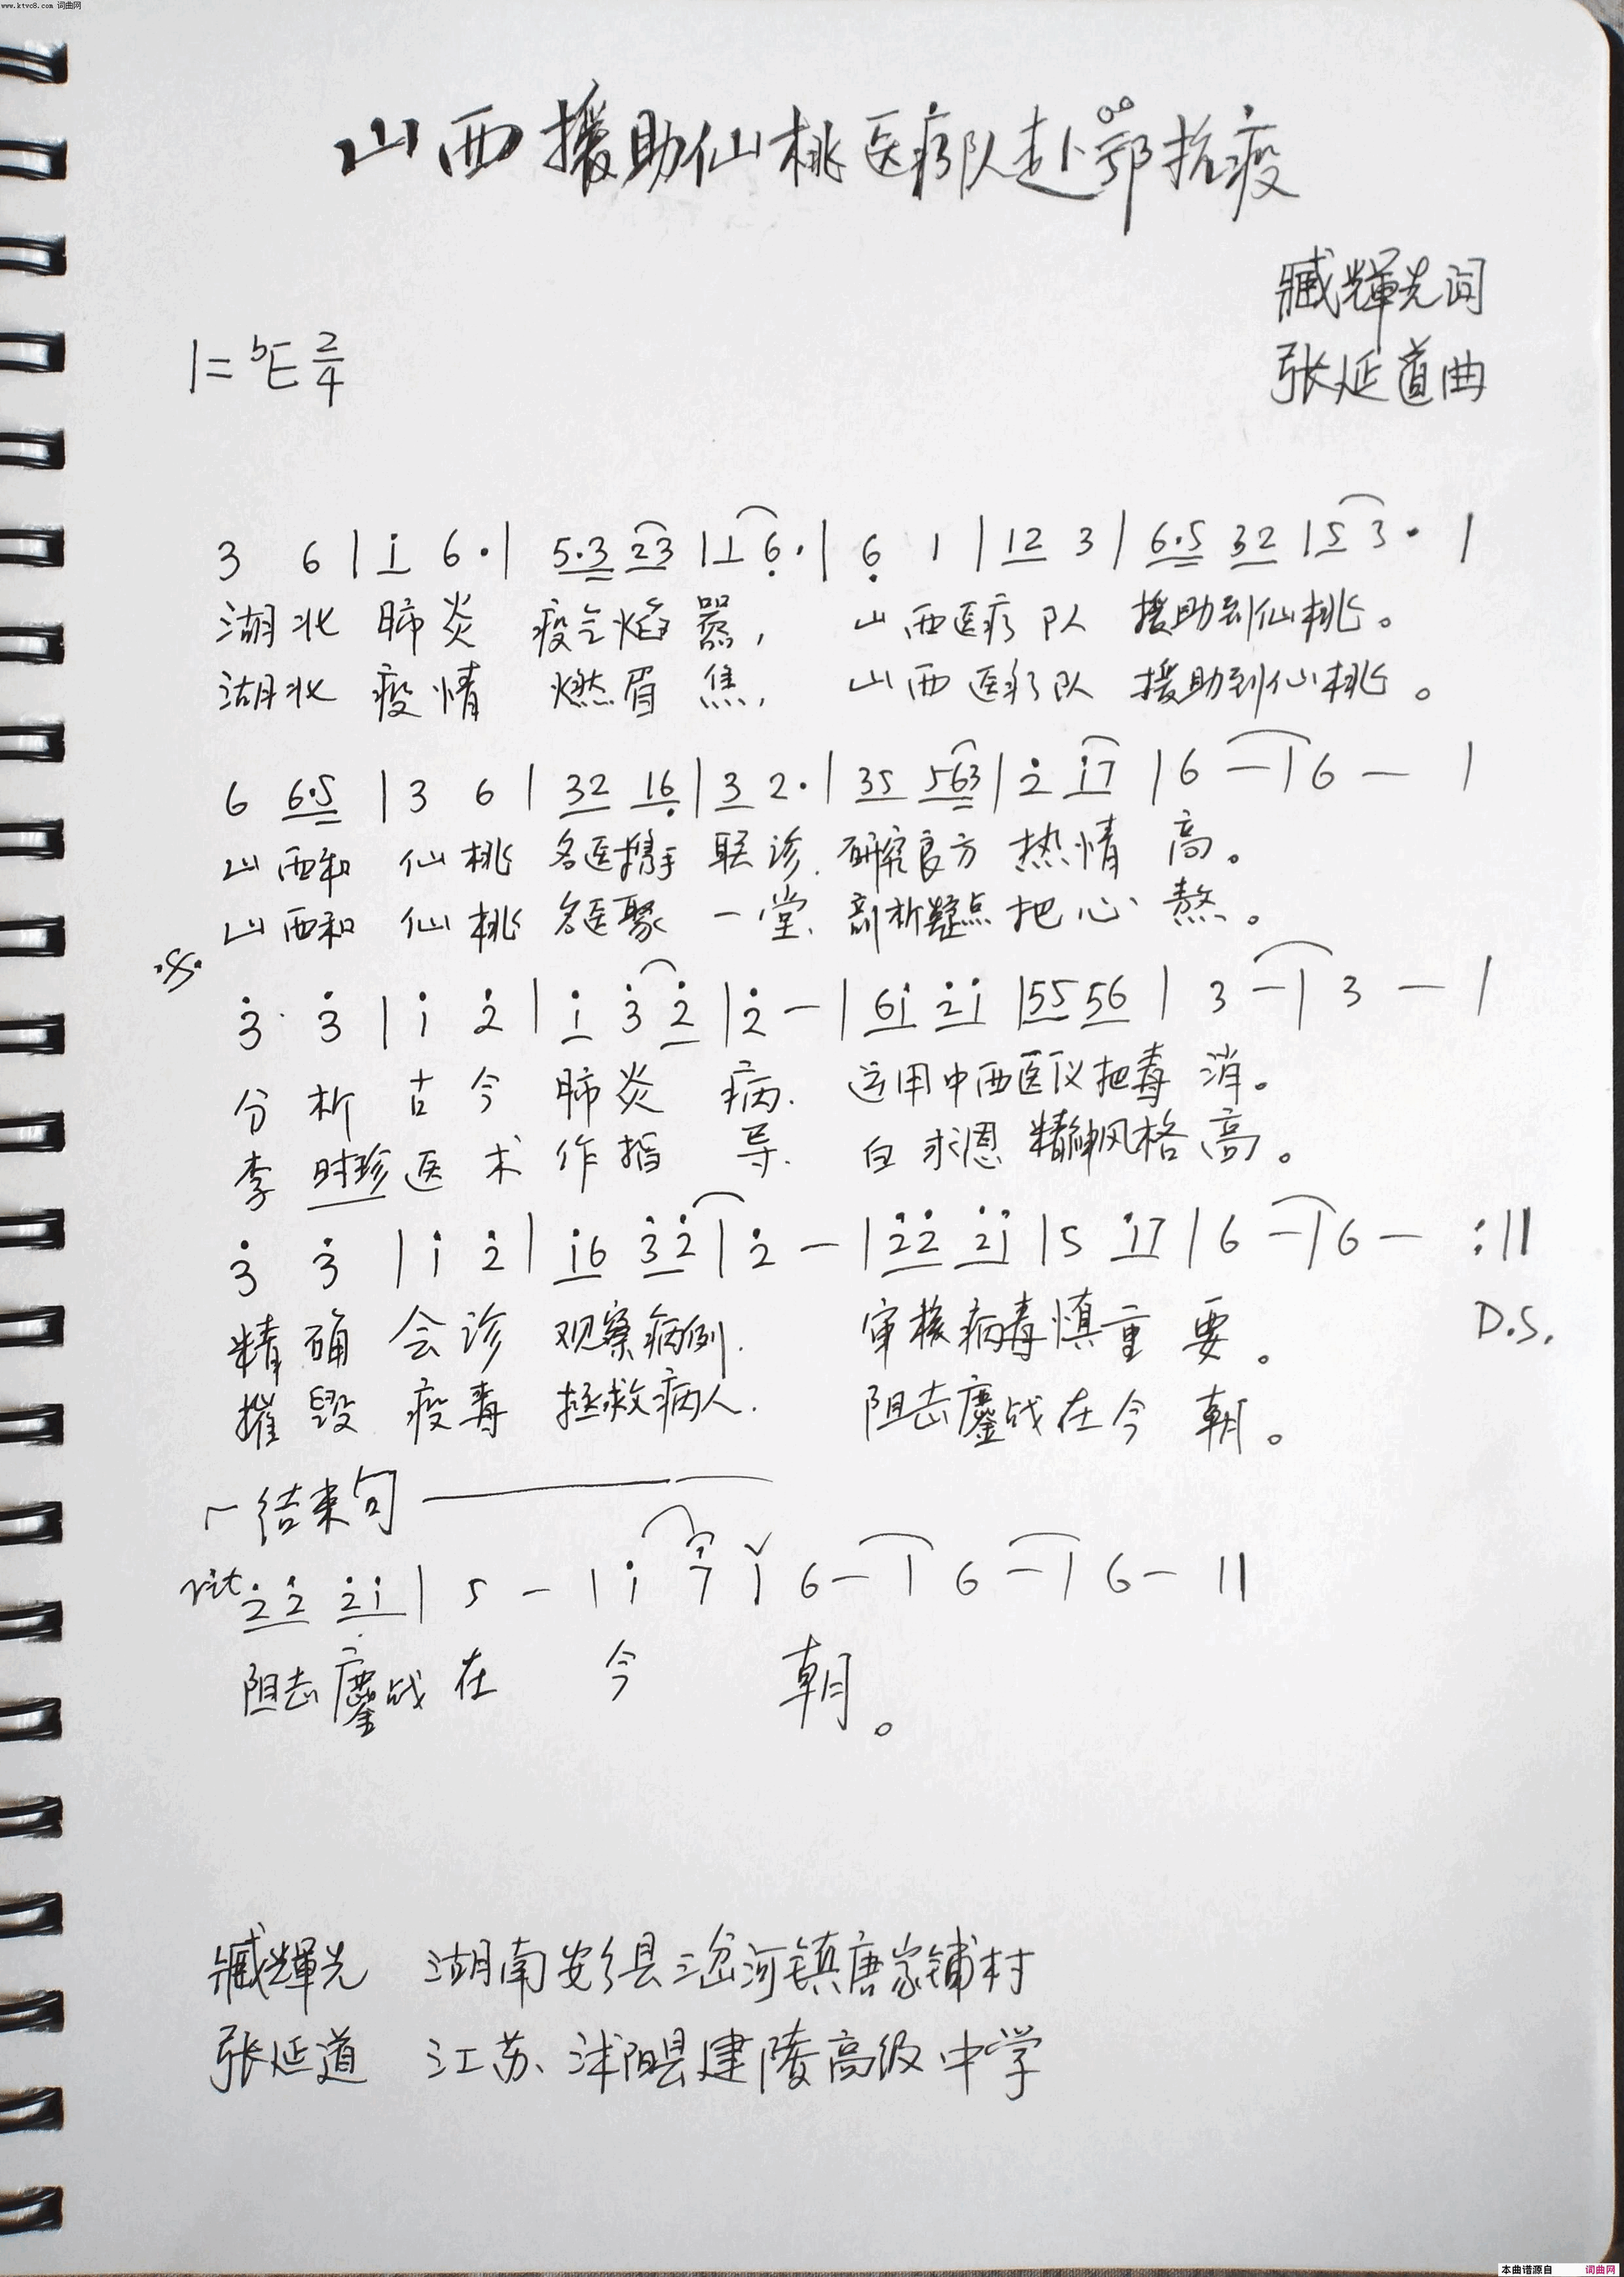 www.ktvc8.com 词曲网
山西援助仙桃医疗队赴鄂抗疫
臧輝光词
张延道曲
1=ᵇE 2/4
3 6 | i 6· | 5·3 23 | 1 6· | 6 1 | 12 3 | 6·5 32 | 5 3· |
湖北 肺炎 疫气焰嚣, 山西医疗队 援助到仙桃。
湖北 疫情 燃眉焦, 山西医疗队 援助到仙桃。
6 6·5 | 3 6 | 32 16 | 3 2· | 35 563 | 2 i7 | 6 — | 6 — |
山西和 仙桃 名医携手 联诊. 研究良方 热情 高。
山西和 仙桃 名医聚 一堂、剖析疑点 把心 熬。
3 3 | i 2 | i 3 2 | 2 — | 6i 2i | 55 56 | 3 — | 3 — |
分析古今 肺炎 病. 运用中西医仪把毒 消。
李时珍医术 作指 导. 白求恩 精神风格 高。
3 3 | i 2 | i6 32 | 2 — | 22 2i | 5 i7 | 6 — | 6 — :||
精确会诊 观察病例. 审核病毒慎重 要。
D.S.
摧毁疫毒 拯救病人. 阻击鏖战在今 朝。
结束句
rit 22 2i | 5 — | i 7 | 6 — | 6 — | 6 — ||
阻击鏖战 在 今 朝。
臧輝光 湖南安乡县三岔河镇唐家铺村
张延道 江苏、沭阳县建陵高级中学
本曲谱源自 词曲网